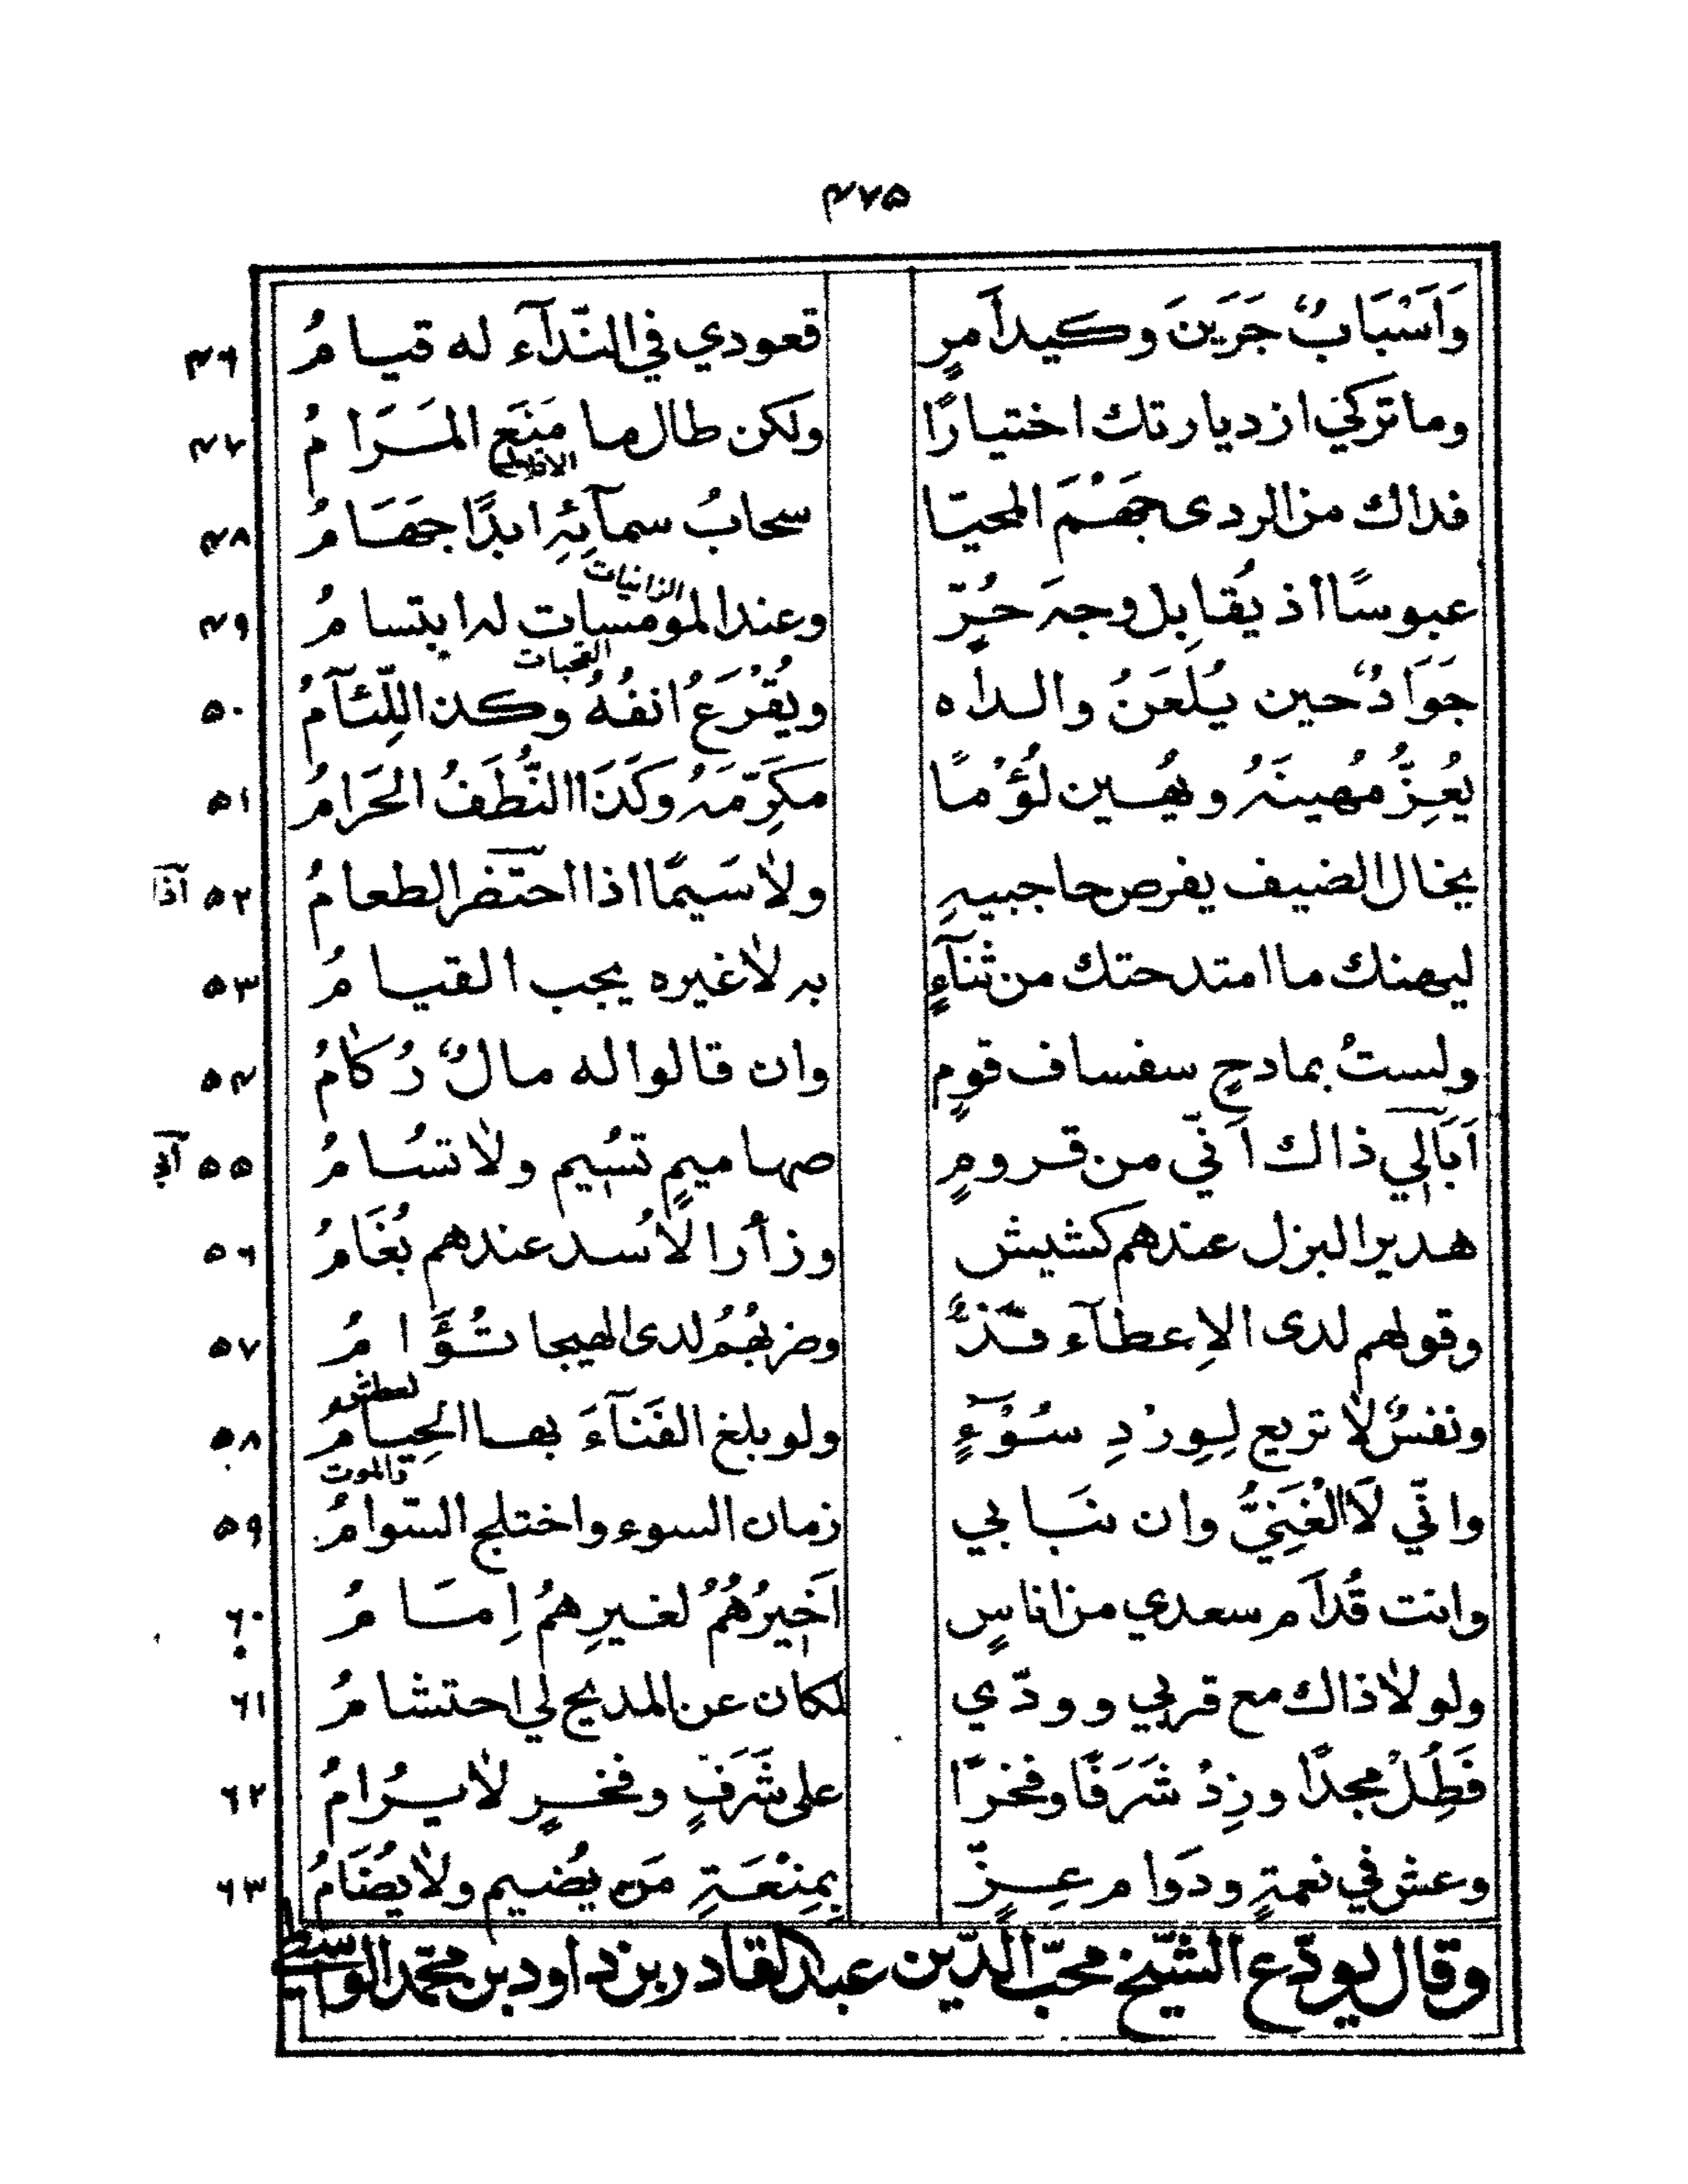 ۴۷۵
وَاَسْبَابٌ جَرَينَ وكيد اَمرٍ قعودي في النّدآء له قيامُ ۴۶
وما تركي ازدياركَ اختيارًا ولكن طال ما مَنَعَ المَرَامُ ۴۷
فداك من الردى جَهْمَ المحيّا سحابُ سمآئهِ ابدًا جَهَامُ ۴۸
عبوسًا اذ يُقابِل وجهَ حُرٍّ وعند المومسات له ابتسامُ ۴۹
الزانيات
القحبات
جَوَادٌ حين يُلعَنُ والداه ويُقْرَعُ انفُهُ وكذا اللِّئآمُ ۵۰
يُعِزُّ مُهينَهُ ويُهين لُؤْمًا مكَرِّمَه وكَذَا النُّطَفُ الحَرامُ ۵۱
يخال الضيف يفرص حاجبيهِ ولا سَيمّا اذا احتضر الطعامُ ۵۲
ليهنك ما امتدحتك من ثنآءٍ به لا غيره يجب القيامُ ۵۳
ولستُ بمادحٍ سفساف قومٍ وان قالوا له مالٌ رُكامُ ۵۴
اَبَآلِي ذاك اَنّي من قرومٍ صهاميمٍ تسُيم ولا تسُامُ ۵۵
هدير البزل عندهم كشيش وزأرا لاُسد عندهم بُغَامُ ۵۶
وقولهم لدى الاِعطآء فَذٌّ وضربُهُمُ لدى الهيجا تُؤَامُ ۵۷
ونفسٌ لا تريع لِوِرْدِ سُوْءٍ ولو بلغ الفَنآءَ بها الحِيامُ ۵۸
والموت
وانّي لَاَلْغَنِيُّ وان نَبا بي زمان السوء واختلج السّوامُ ۵۹
وانت قُدآم سعدي من اناسٍ اَخيرُهُمُ لغيرِهمُ اِمَامُ ۶۰
ولولا ذاك مع قربي وودّي لكان عن المديح لي احتشامُ ۶۱
فَطُلْ مجدًا وزِدْ شَرَفًا وفخرًا على شَرَفٍ وفخرٍ لا يُرامُ ۶۲
وعش في نعمةٍ ودَوام عِزٍّ بمِنْعَةِ مَن يُضيم ولا يُضَامُ ۶۳
وقال يودّع الشّيخ محبّ الدّين عبد القادر بن داود بن محمّد الواسطي